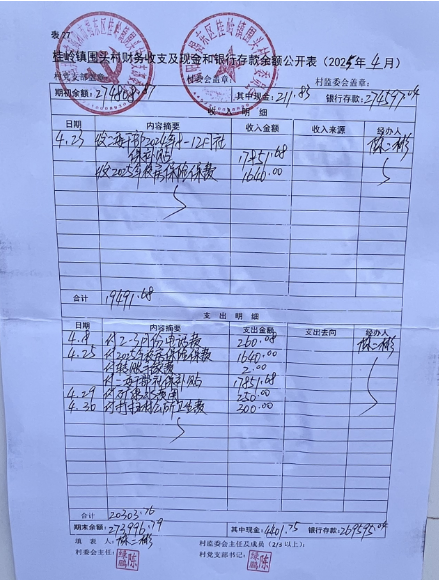 表 77
桂岭镇围头村财务收支及现金和银行存款余额公开表（2025年4月）
村党支部盖章： 村委会盖章： 村监委会盖章：
期初余额：274808.87 其中现金：211.83 银行存款：274597.04
收 入 明 细
日期 内容摘要 收入金额 收入来源 经办人
4.25 收二委干部2024年8-12月社保补贴 17851.68
收2025年农房保险保费 1640.00
合计 19491.68
支 出 明 细
日期 内容摘要 支出金额 支出去向 经办人
4.8 付2-3月份电话费 260.08
4.25 付2025年农房保险保费 1640.00
付转账手续费 2.00
付二委干部社保补贴 17851.68
4.29 250.00
4.30 付打扫村公所卫生费 300.00
合计 20303.76
期末余额：273996.79 其中现金：4401.75 银行存款：269595.04
填 表 人： 村监委会主任及成员（2/3以上）：
村委会主任： 村党支部书记：